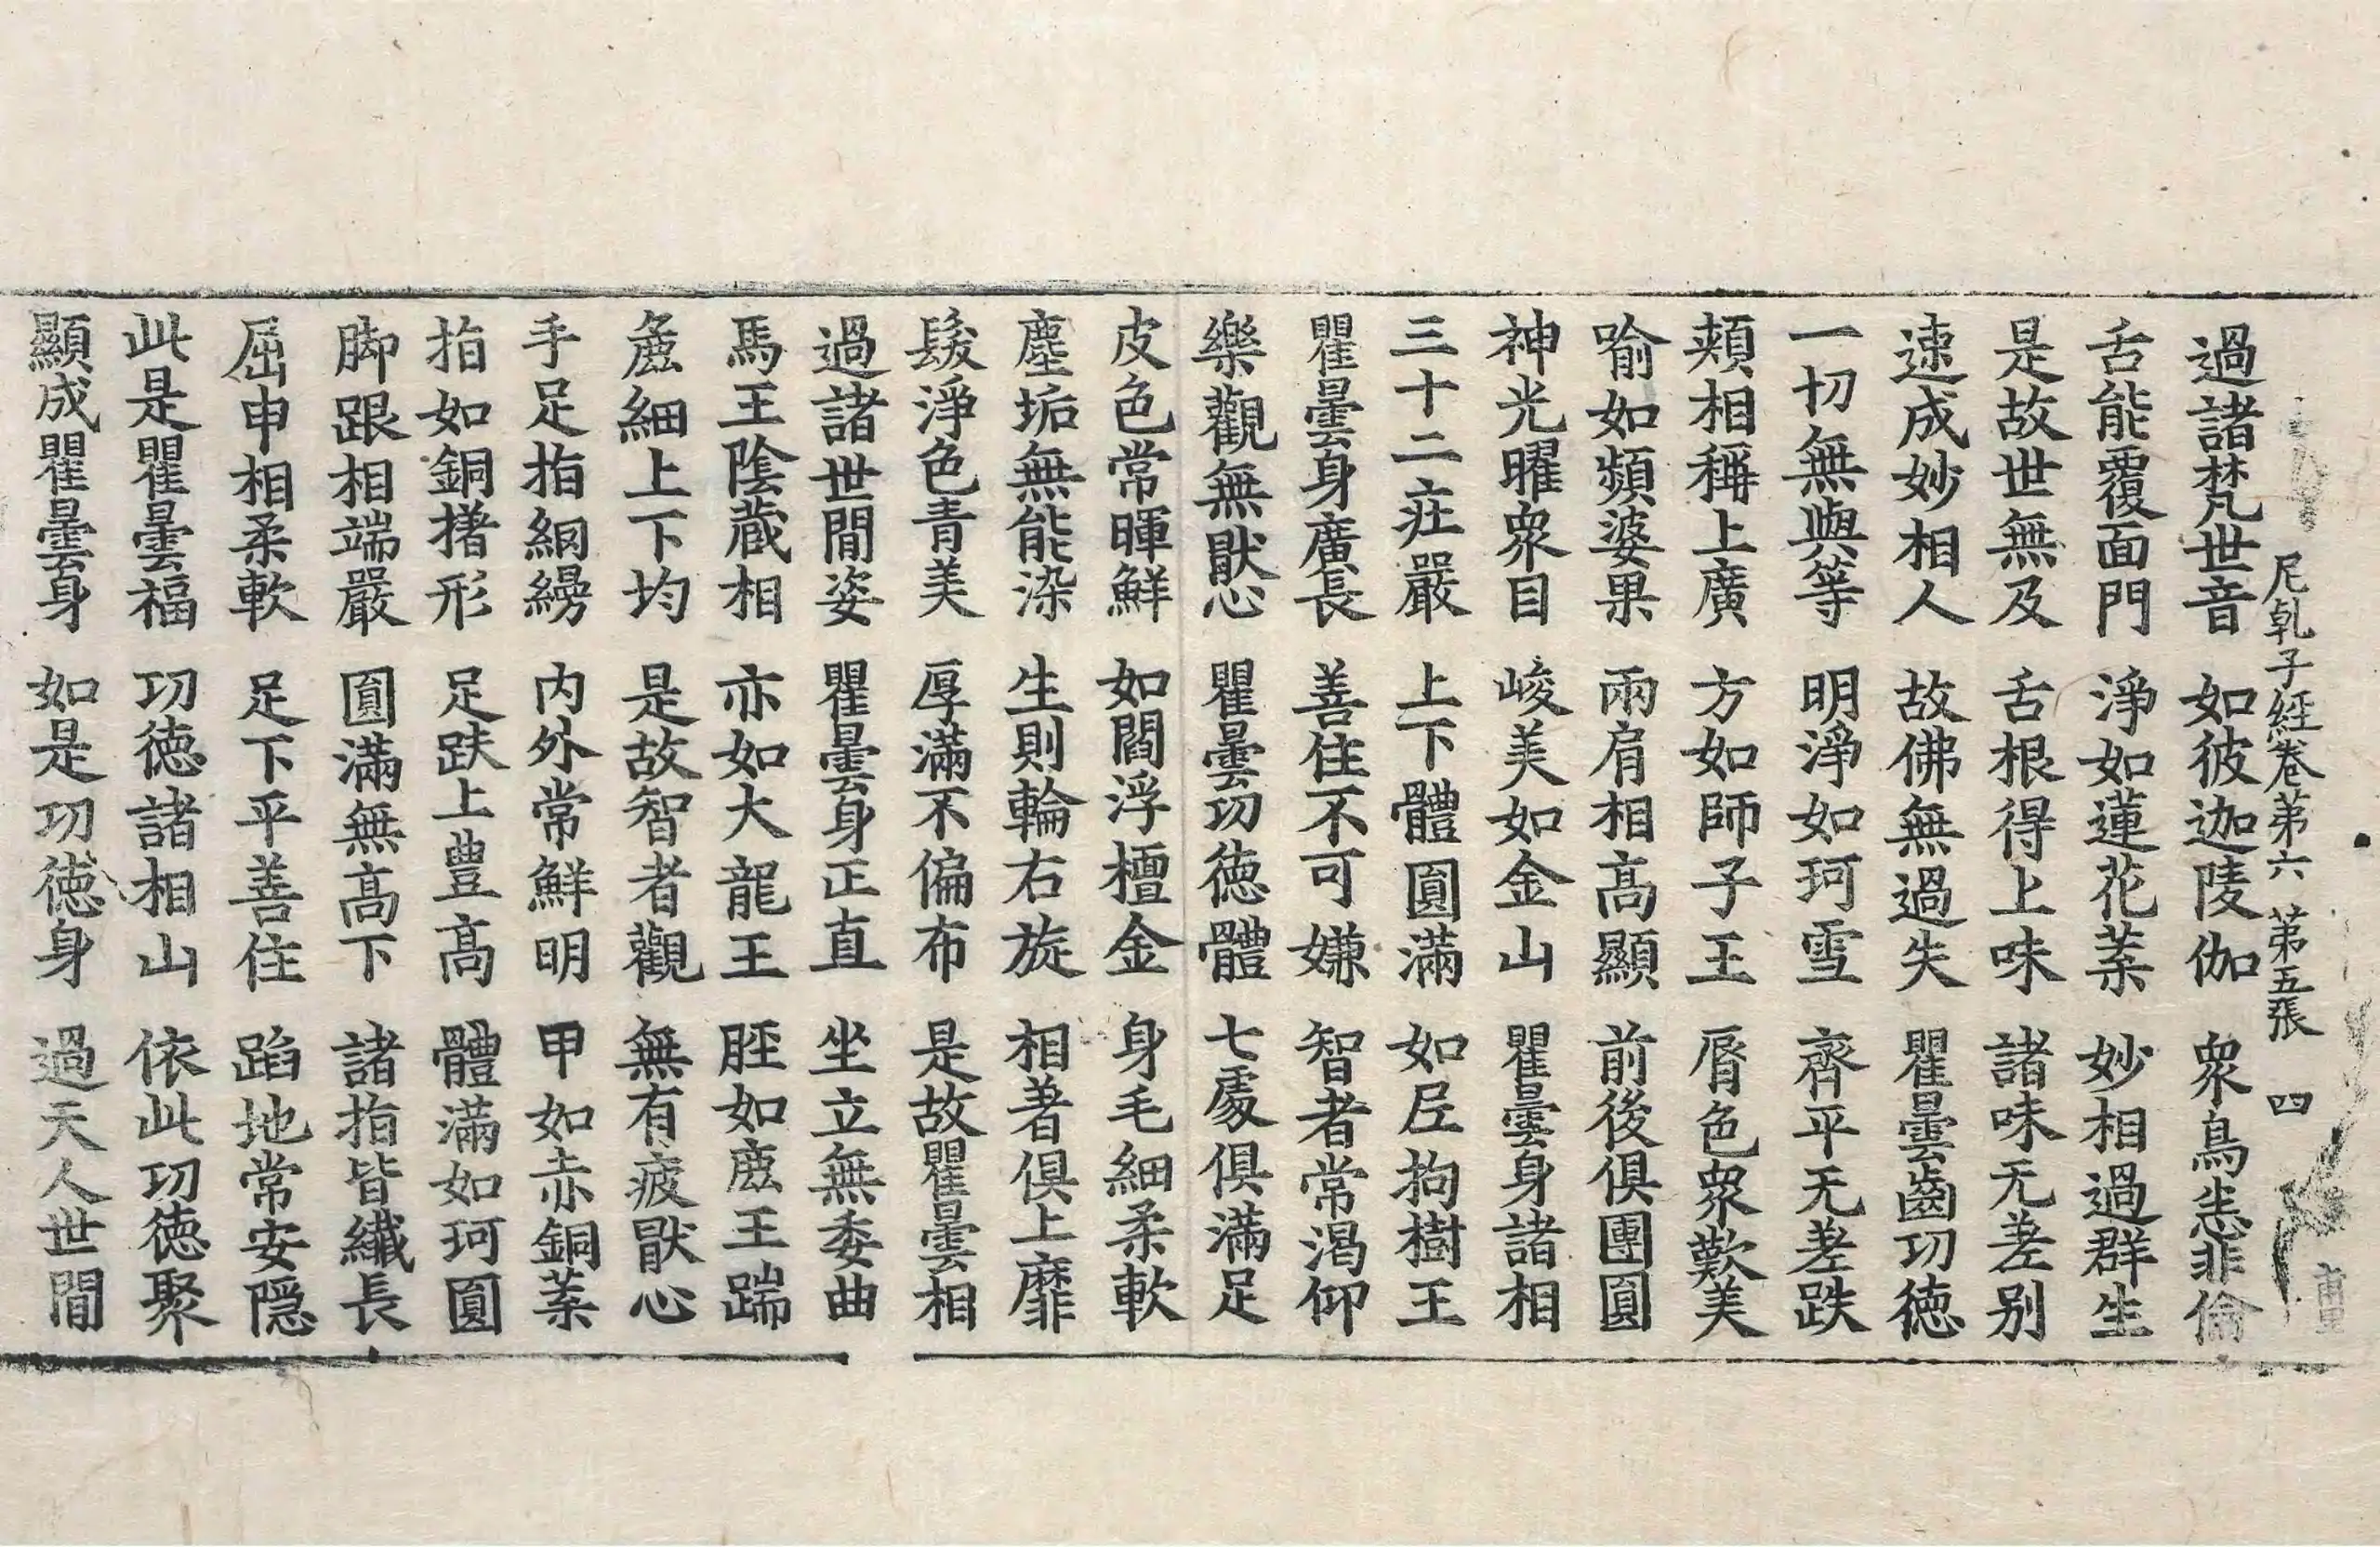 尼乹子經卷第六 第五張 四
過諸梵世音 如彼迦陵伽 衆鳥悉非倫
舌能覆面門 淨如蓮花葉 妙相過群生
是故世無及 舌根得上味 諸味无差别
速成妙相人 故佛無過失 瞿曇齒功徳
一切無與等 明淨如珂雪 齊平无差跌
頰相稱上廣 方如師子王 脣色衆歎美
喻如頻婆果 兩肩相髙顯 前後俱團圓
神光曜衆目 峻美如金山 瞿曇身諸相
三十二㽵嚴 上下體圓滿 如尼拘樹王
瞿曇身廣長 善住不可嫌 智者常渴仰
樂觀無猒心 瞿曇功徳體 七處俱滿足
皮色常暉鮮 如閻浮檀金 身毛細柔軟
塵垢無能染 生則輪右旋 相著俱上靡
髮淨色青美 厚滿不偏布 是故瞿曇相
過諸世間姿 瞿曇身正直 坐立無委曲
馬王陰藏相 亦如大龍王 脛如鹿王踹
麁細上下均 是故智者觀 無有疲猒心
手足指網縵 内外常鮮明 甲如赤銅葉
指如銅撦形 足趺上豊髙 體滿如珂圓
脚跟相端嚴 圓滿無髙下 諸指皆纎長
屈申相柔軟 足下平善住 蹈地常安隱
此是瞿曇福 功徳諸相山 依此功徳聚
顯成瞿曇身 如是功徳身 過天人世間